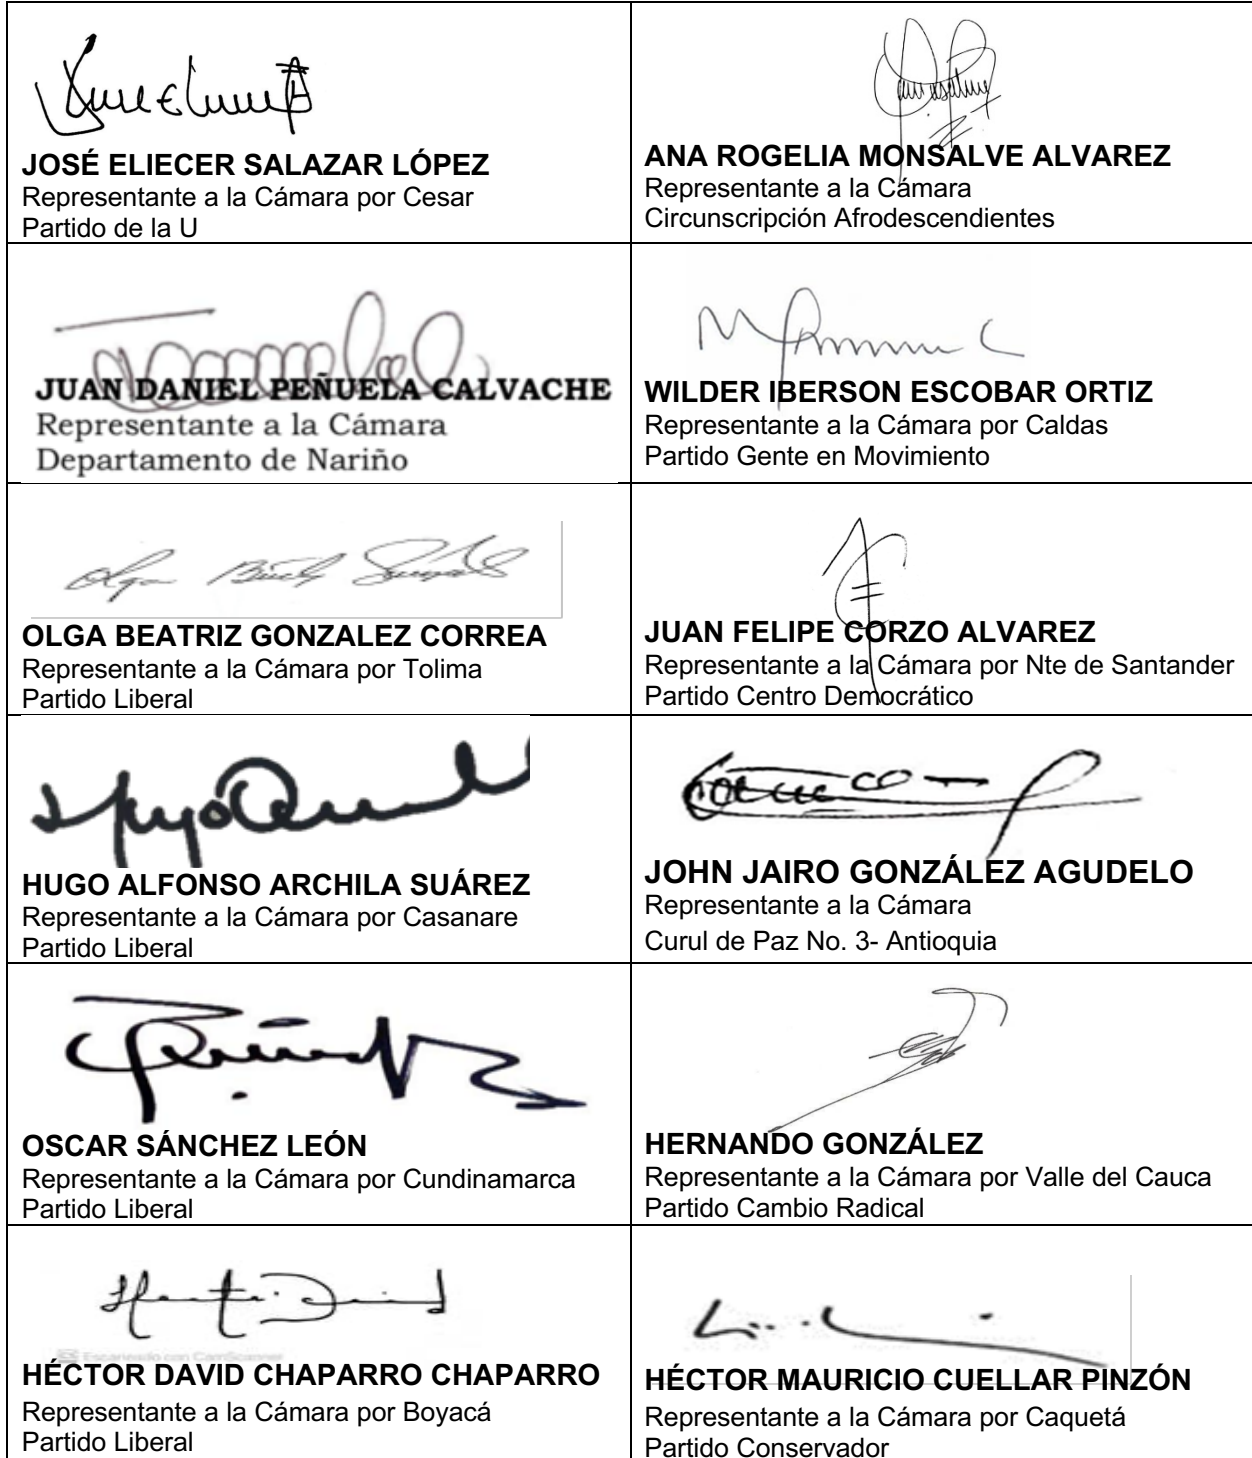 JOSÉ ELIECER SALAZAR LÓPEZ
Representante a la Cámara por Cesar
Partido de la U
ANA ROGELIA MONSALVE ALVAREZ
Representante a la Cámara
Circunscripción Afrodescendientes
JUAN DANIEL PEÑUELA CALVACHE
Representante a la Cámara
Departamento de Nariño
WILDER IBERSON ESCOBAR ORTIZ
Representante a la Cámara por Caldas
Partido Gente en Movimiento
OLGA BEATRIZ GONZALEZ CORREA
Representante a la Cámara por Tolima
Partido Liberal
JUAN FELIPE CORZO ALVAREZ
Representante a la Cámara por Nte de Santander
Partido Centro Democrático
HUGO ALFONSO ARCHILA SUÁREZ
Representante a la Cámara por Casanare
Partido Liberal
JOHN JAIRO GONZÁLEZ AGUDELO
Representante a la Cámara
Curul de Paz No. 3- Antioquia
OSCAR SÁNCHEZ LEÓN
Representante a la Cámara por Cundinamarca
Partido Liberal
HERNANDO GONZÁLEZ
Representante a la Cámara por Valle del Cauca
Partido Cambio Radical
Escaneado con CamScanner
HÉCTOR DAVID CHAPARRO CHAPARRO
Representante a la Cámara por Boyacá
Partido Liberal
HÉCTOR MAURICIO CUELLAR PINZÓN
Representante a la Cámara por Caquetá
Partido Conservador